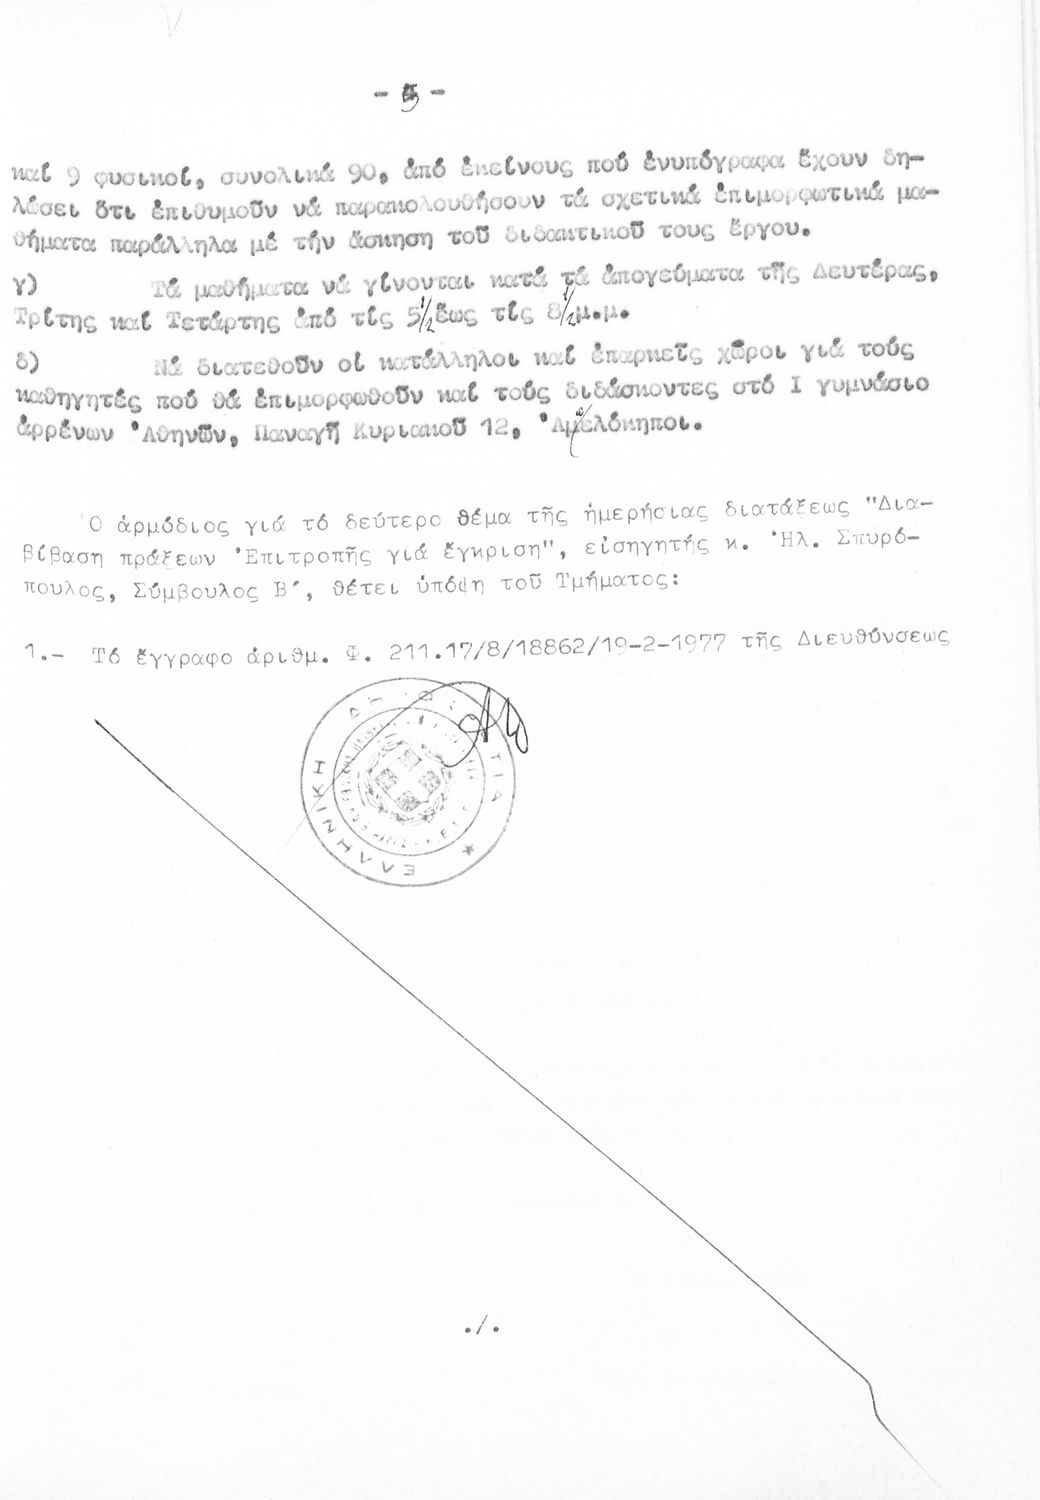 - 5 -
καί 9 φυσικοί, συνολικά 90, ἀπό ἐκείνους πού ἐνυπόγραφα ἔχουν δη-
λώσει ὅτι ἐπιθυμοῦν νά παρακολουθήσουν τά σχετικά ἐπιμορφωτικά μα-
θήματα παράλληλα μέ τήν ἄσκηση τοῦ διδακτικοῦ τους ἔργου.
γ) Τά μαθήματα νά γίνονται κατά τά ἀπογεύματα τῆς Δευτέρας,
Τρίτης καί Τετάρτης ἀπό τίς 5 1/2 ἕως τίς 8 1/2 μ.μ.
δ) Νά διατεθοῦν οἱ κατάλληλοι καί ἐπαρκεῖς χῶροι γιά τούς
καθηγητές πού θά ἐπιμορφωθοῦν καί τούς διδάσκοντες στό Ι γυμνάσιο
ἀρρένων Ἀθηνῶν, Παναγῆ Κυριακοῦ 12, Ἀμπελόκηποι.
Ὁ ἁρμόδιος γιά τό δεύτερο θέμα τῆς ἡμερήσιας διατάξεως "Δια-
βίβαση πράξεων Ἐπιτροπῆς γιά ἔγκριση", εἰσηγητής κ. Ἠλ. Σπυρό-
πουλος, Σύμβουλος Β΄, θέτει ὑπόψη τοῦ Τμήματος:
1.- Τό ἔγγραφο ἀριθμ. Φ. 211.17/8/18862/19-2-1977 τῆς Διευθύνσεως
ΕΛΛΗΝΙΚΗ ΔΗΜΟΚΡΑΤΙΑ
./.